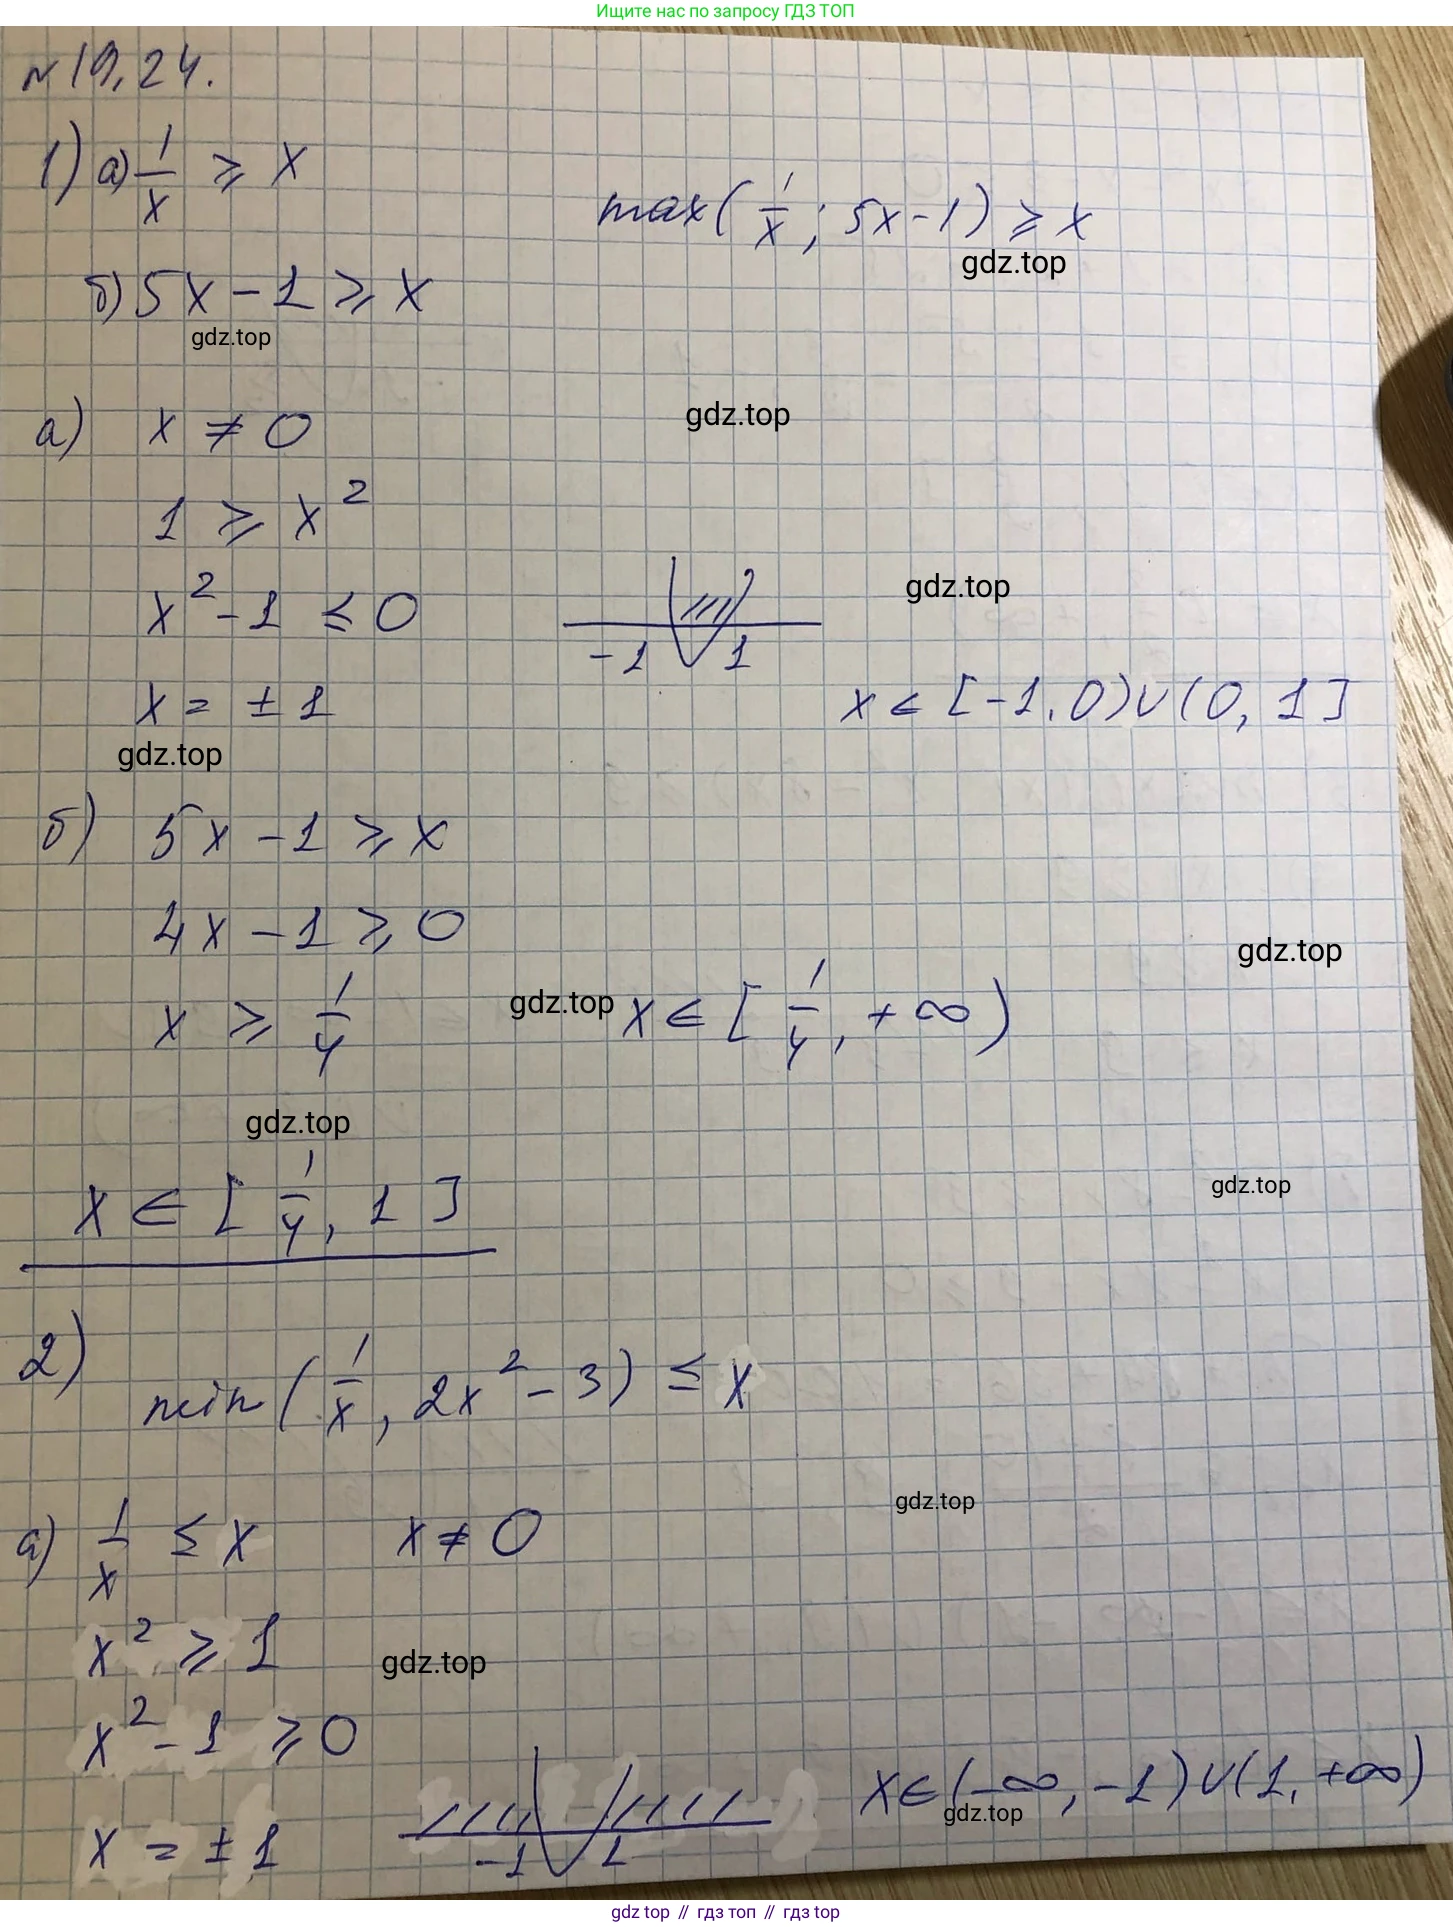 Ищите нас по запросу ГДЗ ТОП
№ 19,24.
1) а) 1/x ⩾ x
max(1/x; 5x-1) ⩾ x
gdz.top
б) 5x - 1 ⩾ x
gdz.top
а) x ≠ 0
gdz.top
1 ⩾ x²
x² - 1 ⩽ 0
gdz.top
-1 1
x = ± 1
x ∈ [-1, 0) ∪ (0, 1]
gdz.top
б) 5x - 1 ⩾ x
4x - 1 ⩾ 0
gdz.top
x ⩾ 1/4
gdz.top
x ∈ [1/4, +∞)
gdz.top
gdz.top
x ∈ [1/4, 1]
2) min(1/x, 2x² - 3) ⩽ x
gdz.top
а) 1/x ⩽ x x ≠ 0
x² ⩾ 1
gdz.top
x² - 1 ⩾ 0
x ∈ (-∞, -1) ∪ (1, +∞)
gdz.top
x = ± 1
-1 1
gdz top // гдз топ // гдз top